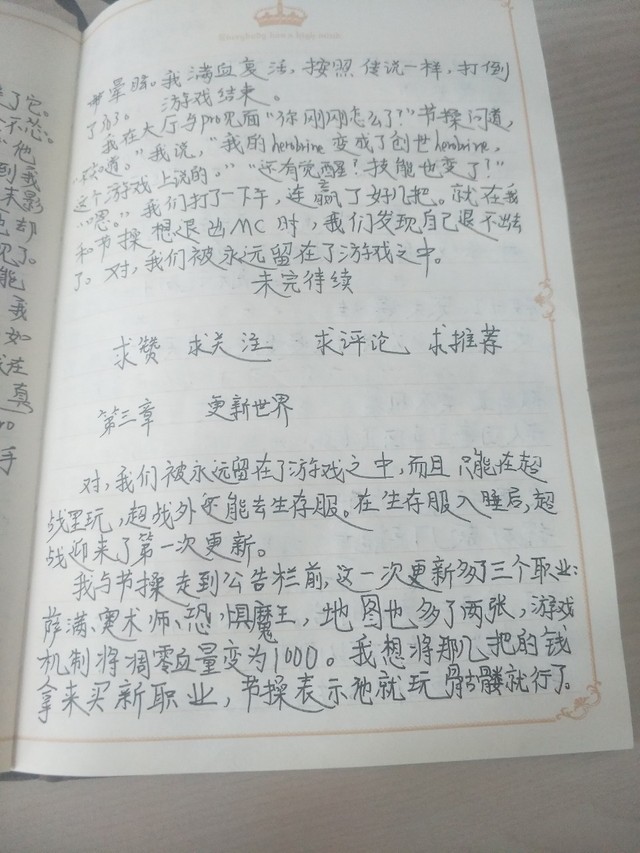 了它。
不忿。
"他
到我
末影
也却
见了。
能
我
如
我在
真
pro
手
Everybody has a high noon
晕眩。我满血复活,按照传说一样,打倒
了63。 游戏结束。
我在大厅与pro见面"你刚刚怎么了?"节操问道,
"不知道。"我说,"我的herobrine变成了创世herobrine,
这个游戏上说的。""还有觉醒?技能也变了?"
"嗯。"我们打了一下午,连赢了好几把。就在我
和节操想退出MC时,我们发现自己退不出去
了。对,我们被永远留在了游戏之中。
未完待续
求赞 求关注 求评论 求推荐
第三章 更新世界
对,我们被永远留在了游戏之中,而且只能在超
战里玩,超战外还能去生存服。在生存服入睡后,超
战迎来了第一次更新。
我与节操走到公告栏前,这一次更新多了三个职业:
萨满、寒术师、恐惧魔王,地图也多了两张,游戏
机制将凋零血量变为1000。我想将那几把的钱
拿来买新职业,节操表示祂就玩骷髅就行了。